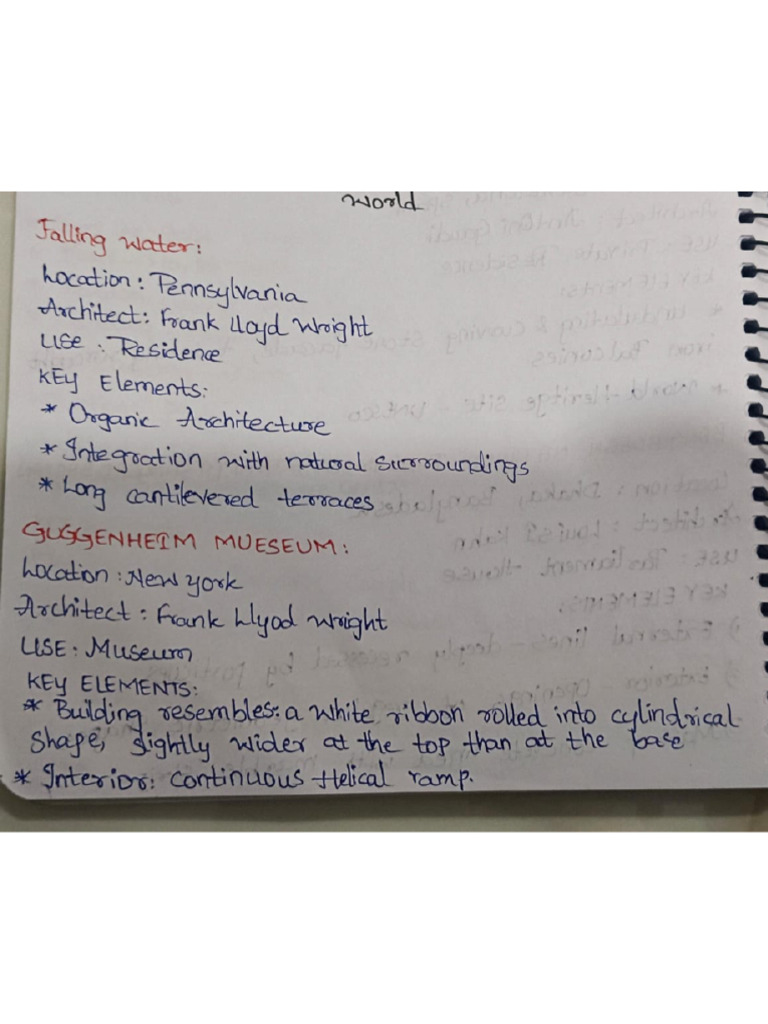 World
Falling Water:
Location: Pennsylvania
Architect: Frank Lloyd Wright
USe: Residence
KEy Elements:
* Organic Architecture
* Integration with natural surroundings
* Long cantilevered terraces
GUGGENHEIM MUESEUM:
Location: New york
Architect: Frank Llyod Wright
USE: Museum
KEY ELEMENTS:
* Building resembles: a white ribbon rolled into cylindrical
shape, slightly wider at the top than at the base
* Interior: continuous Helical ramp.